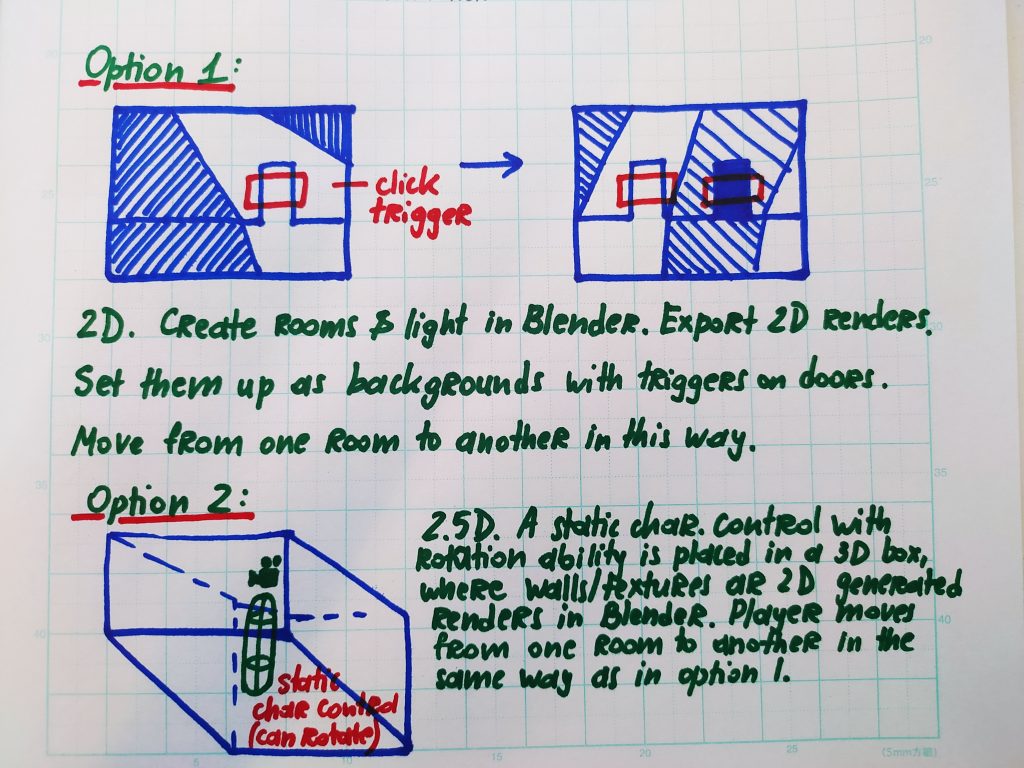 20
Option 1:
25
click
trigger
25
2D. Create rooms & light in Blender. Export 2D renders.
30
30
Set them up as backgrounds with triggers on doors.
Move from one room to another in this way.
35
35
Option 2:
2.5D. A static char. control with
rotation ability is placed in a 3D box,
where walls/textures ar 2D generated
renders in Blender. Player moves
from one room to another in the
same way as in option 1.
40
40
static
char control
(can rotate)
5
10
15
20
25
(5mm方眼)